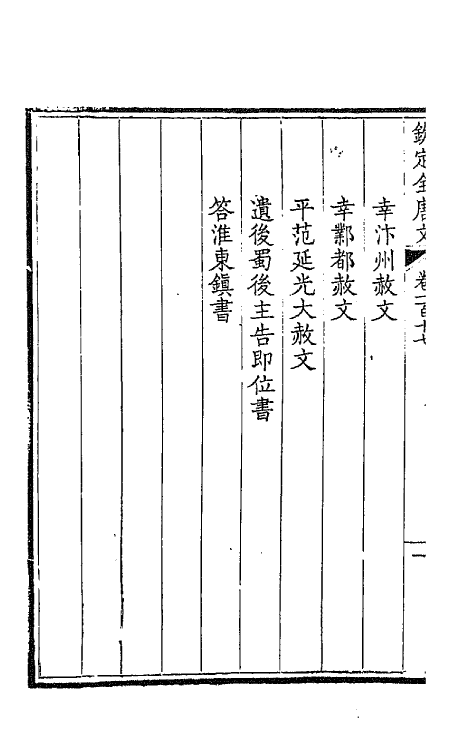 欽定全唐文 卷一百十七 一
幸汴州赦文
幸鄴都赦文
平范延光大赦文
遺後蜀後主告即位書
答淮東鎮書